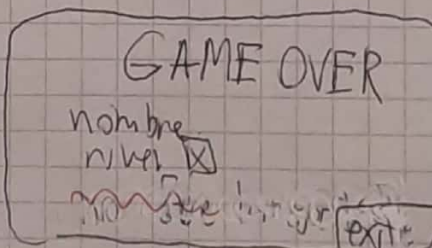 GAME OVER
nombre
nivel X
exit